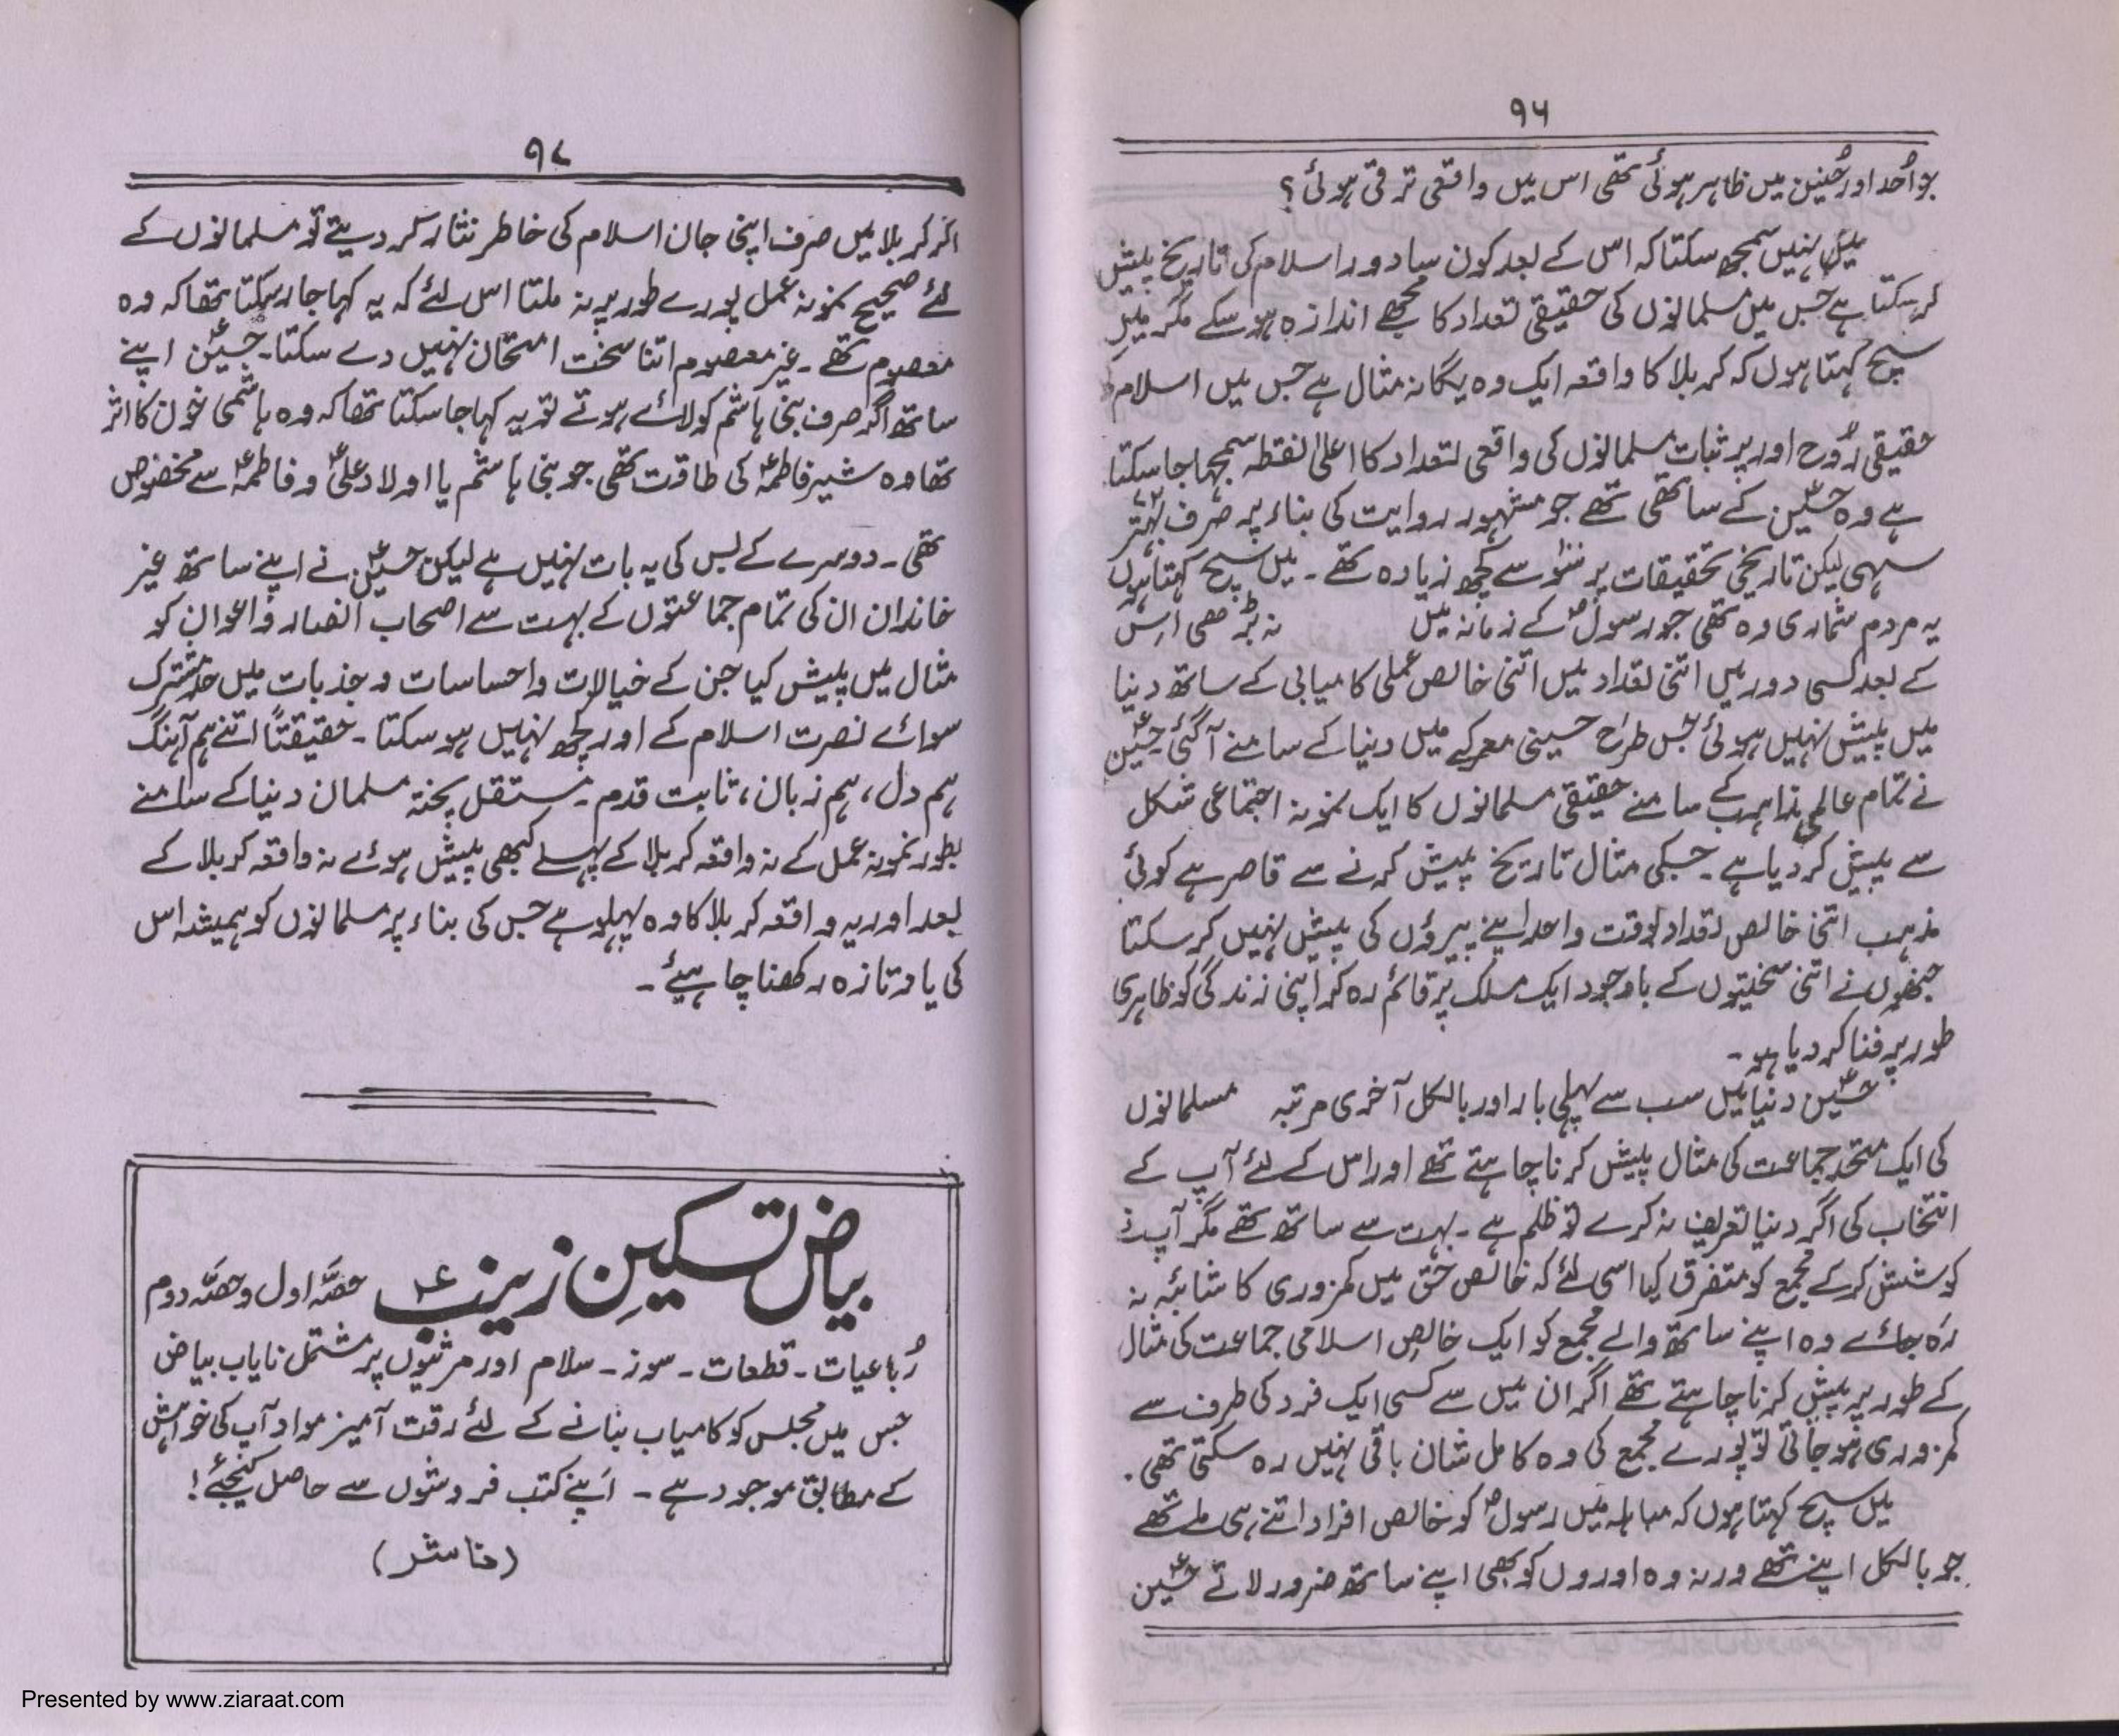 ۹۶
جو اُحد اور حُنین میں ظاہر ہوئی تھی اس میں واقعی ترقی ہوئی؟
میں نہیں سمجھ سکتا کہ اس کے بعد کون سا دور اسلام کی تاریخ پیش
کر سکتا ہے جس میں مسلمانوں کی حقیقی تعداد کا مجھے اندازہ ہو سکے مگر میں
سچ کہتا ہوں کہ کربلا کا واقعہ ایک وہ یگانہ مثال ہے جس میں اسلام
حقیقی رُوح اور پر ثبات مسلمانوں کی واقعی تعداد کا اعلیٰ نقطہ سمجھا جا سکتا
ہے وہ حسینؑ کے ساتھی تھے جو مشہور روایت کی بناء پر صرف بہتّر
سہی لیکن تاریخی تحقیقات پر سَو سے کچھ زیادہ تھے۔ میں سچ کہتا ہوں
یہ مردم شماری وہ تھی جو رسولؐ کے زمانہ میں نہ بڑھی اس
کے بعد کسی دور میں اتنی تعداد میں اتنی خالص عملی کامیابی کے ساتھ دنیا
میں پیش نہیں ہوئی جس طرح حسینی معرکے میں دنیا کے سامنے آگئی حسینؑ
نے تمام عالمی مذاہب کے سامنے حقیقی مسلمانوں کا ایک نمونہ اجتماعی شکل
سے پیش کر دیا ہے۔ جسکی مثال تاریخ پیش کرنے سے قاصر ہے کوئی
مذہب اتنی خالص تعداد بوقت واحد اپنے پیروؤں کی پیش نہیں کر سکتا
جنھوں نے اتنی سختیوں کے باوجود ایک مسلک پر قائم رہ کر اپنی زندگی کو ظاہری
طور پر فنا کر دیا ہو۔
حسینؑ دنیا میں سب سے پہلی بار اور بالکل آخری مرتبہ مسلمانوں
کی ایک متحد جماعت کی مثال پیش کرنا چاہتے تھے اور اس کے لئے آپ کے
انتخاب کی اگر دنیا تعریف نہ کرے تو ظلم ہے۔ بہت سے ساتھ تھے مگر آپ نے
کوشش کر کے مجمع کو متفرق کیا اسی لئے کہ خالص حق میں کمزوری کا شائبہ نہ
رہ جائے وہ اپنے ساتھ والے مجمع کو ایک خالص اسلامی جماعت کی مثال
کے طور پر پیش کرنا چاہتے تھے اگر ان میں سے کسی ایک فرد کی طرف سے
کمزوری ہو جاتی تو پورے مجمع کی وہ کامل شان باقی نہیں رہ سکتی تھی۔
میں سچ کہتا ہوں کہ مباہلہ میں رسولؐ کو خالص افراد اتنے ہی ملے تھے
جو بالکل اپنے تھے ورنہ وہ اوروں کو بھی اپنے ساتھ ضرور لاتے حسینؑ
۹۷
اگر کربلا میں صرف اپنی جان اسلام کی خاطر نثار کر دیتے تو مسلمانوں کے
لئے صحیح نمونہ عمل پورے طور پر نہ ملتا اس لئے کہ یہ کہا جا سکتا تھا کہ وہ
معصوم تھے۔ غیر معصوم اتنا سخت امتحان نہیں دے سکتا۔ حسینؑ اپنے
ساتھ اگر صرف بنی ہاشم کو لائے ہوتے تو یہ کہا جا سکتا تھا کہ وہ ہاشمی خون کا اثر
تھا وہ شیر فاطمہؑ کی طاقت تھی جو بنی ہاشم یا اولاد علیؑ و فاطمہؑ سے مخصوص
تھی۔ دوسرے کے بس کی یہ بات نہیں ہے لیکن حسینؑ نے اپنے ساتھ غیر
خاندان ان کی تمام جماعتوں کے بہت سے اصحاب انصار و اعوان کو
مثال میں پیش کیا جن کے خیالات و احساسات و جذبات میں حد مشترک
سوائے نصرت اسلام کے اور کچھ نہیں ہو سکتا۔ حقیقتاً اتنے ہم آہنگ
ہم دل، ہم زبان، ثابت قدم۔ مستقل پختہ مسلمان دنیا کے سامنے
بطور نمونہ عمل کے نہ واقعہ کربلا کے پہلے کبھی پیش ہوئے نہ واقعہ کربلا کے
بعد اور یہ واقعہ کربلا کا وہ پہلو ہے جس کی بناء پر مسلمانوں کو ہمیشہ اس
کی یاد تازہ رکھنا چاہیئے۔
بیاض تسکینِ زینبؑ حصّہ اول و حصّہ دوم
رُباعیات۔ قطعات۔ سوز۔ سلام اور مرثیوں پر مشتمل نایاب بیاض
جس میں مجلس کو کامیاب بنانے کے لئے رقت آمیز مواد آپ کی خواہش
کے مطابق موجود ہے۔ اَپنے کتب فروشوں سے حاصل کیجئے!
(ناشر)
Presented by www.ziaraat.com